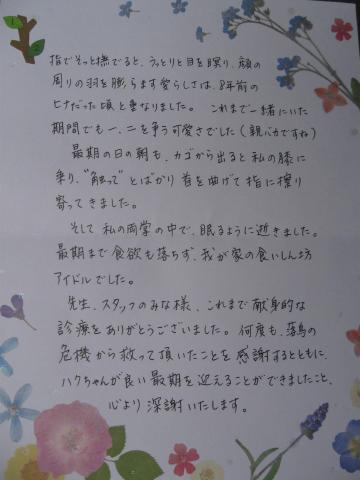 指でそっと撫でると、うっとりと目を瞑り、顔の
周りの羽を膨らます愛らしさは、8年前の
ヒナだった頃と重なりました。これまで一緒にいた
期間でも一、二を争う可愛さでした(親バカですね)
最期の日の朝も、カゴから出ると私の膝に
乗り、"触って"とばかり首を曲げて指に擦り
寄ってきました。
そして私の両掌の中で、眠るように逝きました。
最期まで食欲も落ちず、我が家の食いしん坊
アイドルでした。
先生、スタッフのみな様、これまで献身的な
診療をありがとうございました。何度も、落鳥の
危機から救って頂いたことを感謝するとともに、
ハクちゃんが良い最期を迎えることができましたこと、
心より深謝いたします。